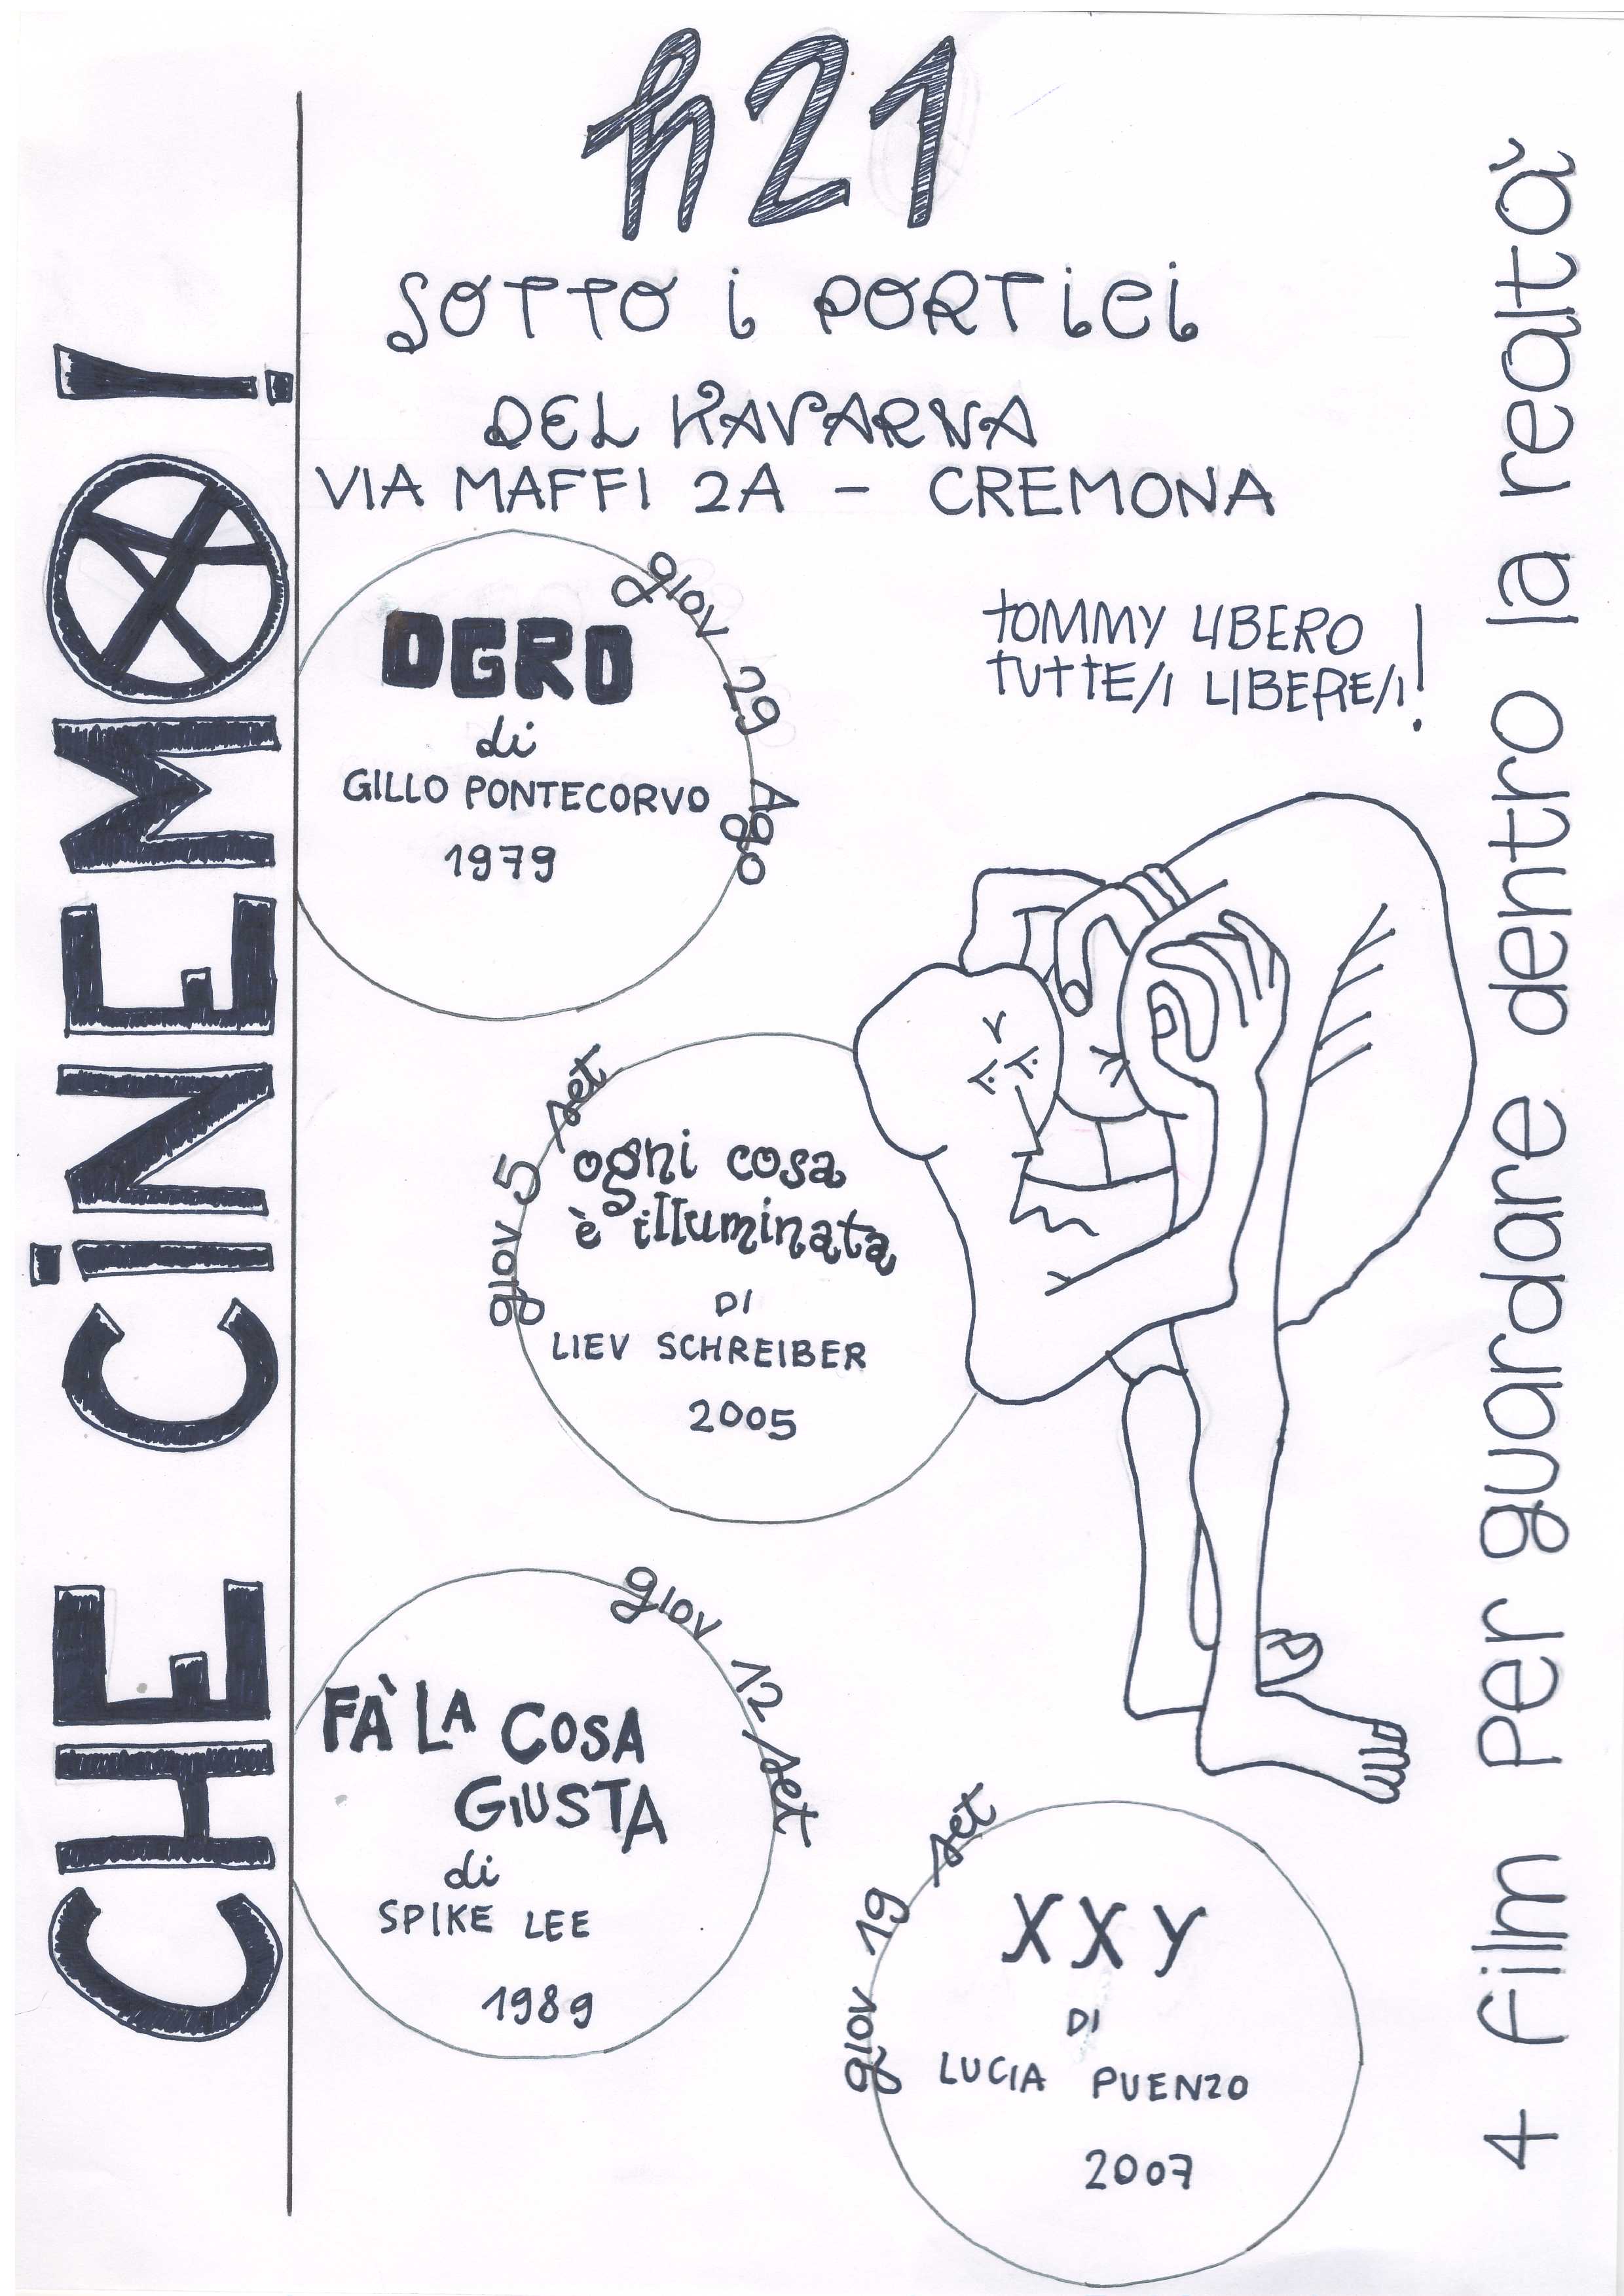 CHE CiNEMⒶ!
h21
SOTTO i PORTiCi
DEL KAVARNA
VIA MAFFI 2A - CREMONA
TOMMY LIBERO
TUTTE/I LIBERE/I!
giov 29 Ago
OGRO
di
GILLO PONTECORVO
1979
giov 5 set
ogni cosa
è illuminata
DI
LIEV SCHREIBER
2005
giov 12 set
FÀ LA COSA
GIUSTA
di
SPIKE LEE
1989
giov 19 set
XXY
DI
LUCIA PUENZO
2007
4 film Per guardare dentro la realtà